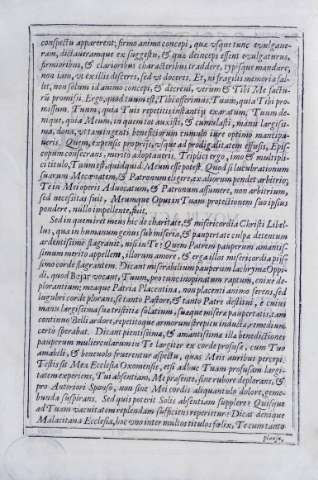 conspectu apparerent; firmo animo concepi, quæ vsque tunc evulgave-
ram, dictaveramque ex suggestu, & quæ deinceps essent evulgaturus,
firmioribus, & clarioribus characteribus tradere, typisque mandare,
non tam, vt ex illis disceres, sed vt doceres. Et, ni fragilis memoria fal-
lit, non solum id animo concepi, & decrevi, verùm & Tibi Me factu-
rũ promissi. Ergo, quod tuum est, Tibi offerimus: Tuum, quia Tibi pro-
missum. Tuum, quia Tuis repetitis instantijs exaratum. Tuum de-
nique, quia Meum, in quem tot auxisti, & cumulasti, manu largissi-
ma, donis, vt tam ingenti beneficiorum cumulo iure optimo mancipa-
veris. Quem, expensis proprijs, vsque ad prodigalitatem effusis, Epis-
copum consecrans, merito adoptaveris. Triplici ergo, imo & multipli-
ci titulo, Tuum est, quidquid Meum esse potest. Quod si lucubrationum
suarum Mecænatem, & Patronum eligere, ex aliorum pendet arbitrio;
Te in Mei operis Advocatum, & Patronum assumere, non arbitrium,
sed necessitas fuit, Meumque Opus in Tuam protectionem suo ipsius
pondere, nullo impellente, fuit.
Sed in quem iret magis hic de charitate, & misericordia Christi Libel-
lus, qua in humanum genus sub miseria, & paupertate culpæ detentum
ardentissimè flagravit, nisi in Te? Quem Patrem pauperum amantis-
simum merito appellem, illorum amore, & erga illos misericordia pijs-
simo corde flagrantem. Dicant miserabilium pauperum lachrymæ Oppi-
di, quod Bejar vocant, Tuum, protinus inopinatum raptum, enixe de-
plorantium;
lugubri corde plorans, se tanto Pastore, & tanto Patre destitui, è cuius
manu largissima sua tristitia solatium, suæque miseræ paupertatis, tam
certò sperabat. Dicant pientissima, & amantissima illa benedictiones
pauperum muliercularum in Te largiter ex corde profusæ, cum Tuo
amabili, & benevolo fruerentur aspectu, quas Meis auribus percepi.
Testis sit Mea Ecclesia Oxomensis, etsi adhuc Tuam profusam largi-
tatem experiens, Tui absentiam, Me præsente, sine rubore deplorans, &
pro Antecessori Sponso, non sine Mei cordis aliquantulo dolore, geme-
bunda suspirans. Sed quis poterit Solis absentiam supplere? Quisque
ad Tuam vacuitatem replendam sufficiens reperietur? Dicat denique
Malacitana Ecclesia, hoc vno inter multos titulos fœlix, Te cum tanto